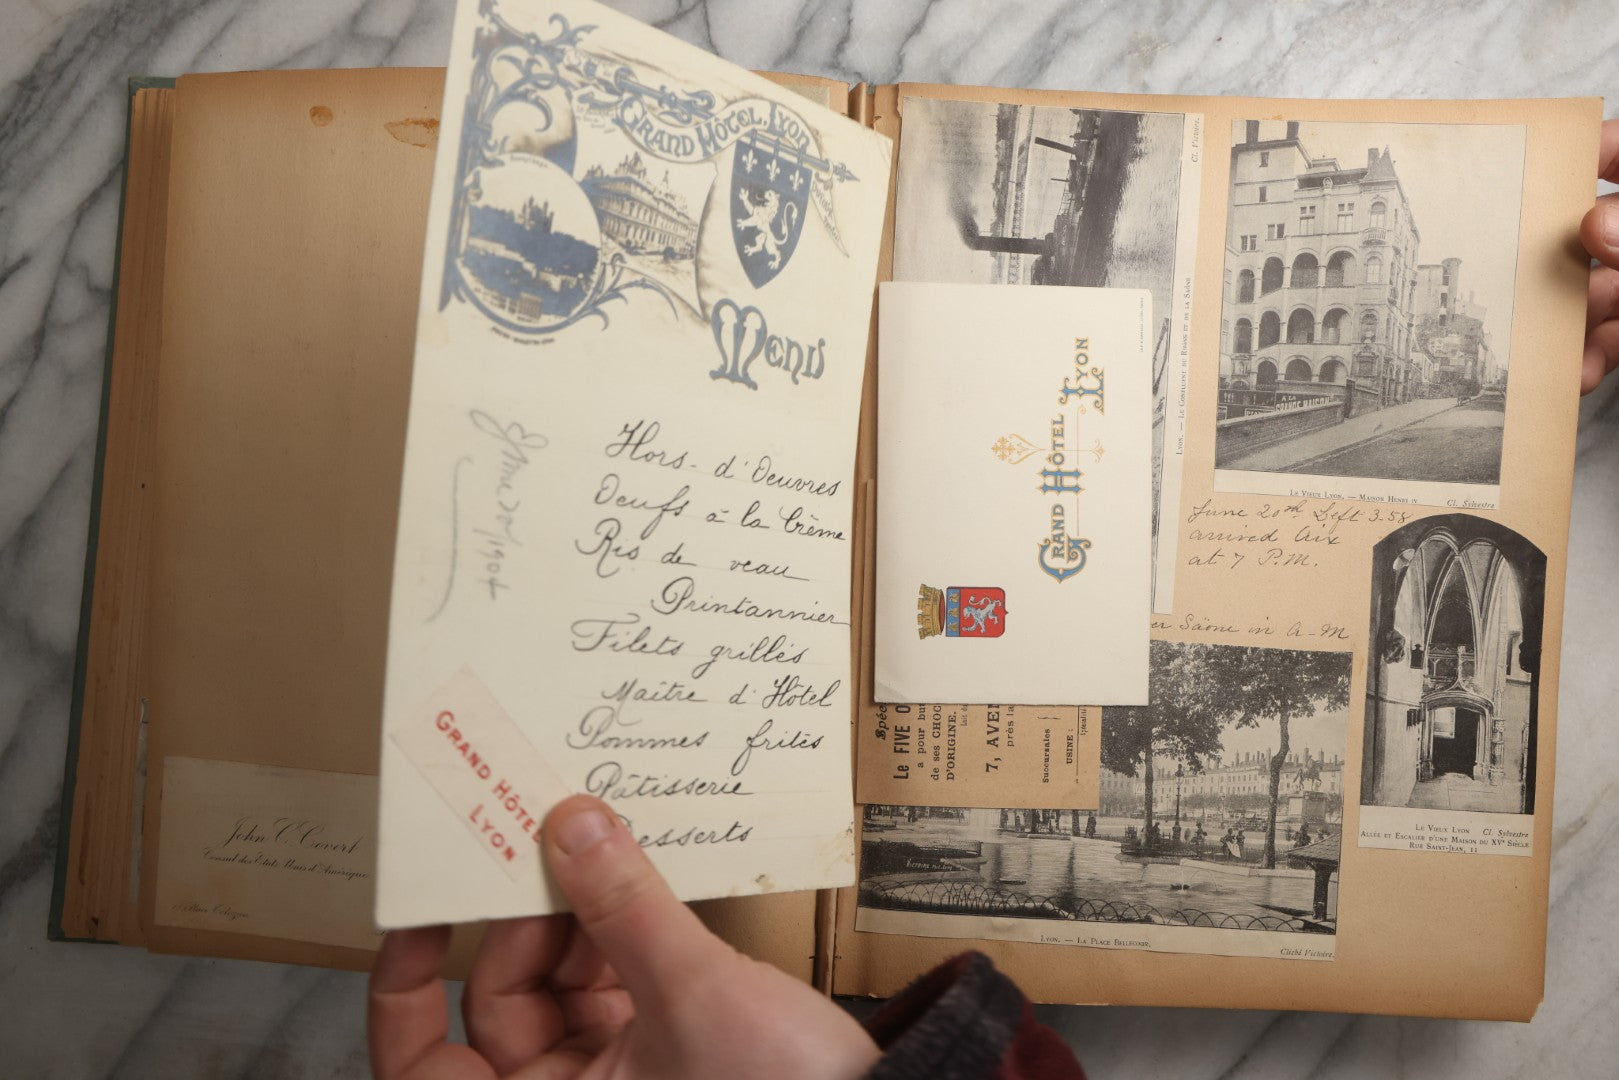 GRAND HÔTEL, LYON
MENU
Hors-d'Oeuvres
Oeufs à la Crême
Ris de veau
Printannier
Filets grillés
Maître d'Hôtel
Pommes frites
Pâtisserie
Desserts
June 20/1904
GRAND HÔTEL
LYON
John C. Covert
Consul des États Unis d'Amérique
Cl. Victoire.
LYON. — LE CONFLUENT DU RHÔNE ET DE LA SAÔNE
GRAND HÔTEL LYON
A LA
GRANDE MAISON
LE VIEUX LYON. — MAISON HENRI IV
Cl. Sylvestre
June 20th Left 3-58
arrived Aix
at 7 P.M.
Saône in A-M
Le FIVE O
a pour bu
de ses CHOC
D'ORIGINE.
7, AVEN
près la
Succursales
USINE :
LE VIEUX LYON Cl. Sylvestre
ALLÉE ET ESCALIER D'UNE MAISON DU XVe SIÈCLE
RUE SAINT-JEAN, 11
LYON. — LA PLACE BELLECOUR.
Cliché Victoire.